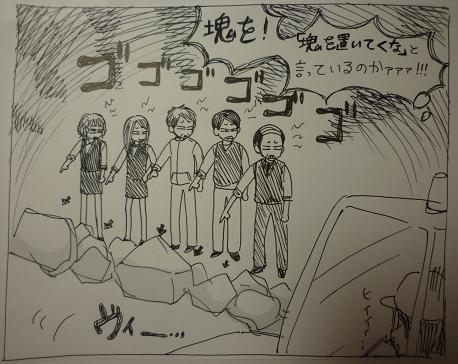 塊を!
「塊を置いてくな」と
言っているのかァァァ!!!
ゴゴゴゴゴゴ
ヴィー…
ヒイィー…